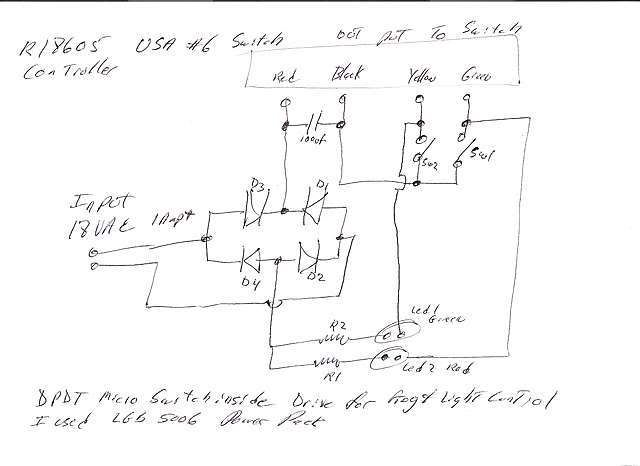 R18605 USA #6 Switch OUT PUT To Switch
Controller
Red Black Yellow Green
100uf
SW2 SW1
D3 D1
INPUT
18 VAC 1Amp
D4 D2
Led1
Green
R2
R1
Led2 Red
DPDT Micro Switch inside Drive for Frog & Light Control
I used LGB 5006 Power Pack